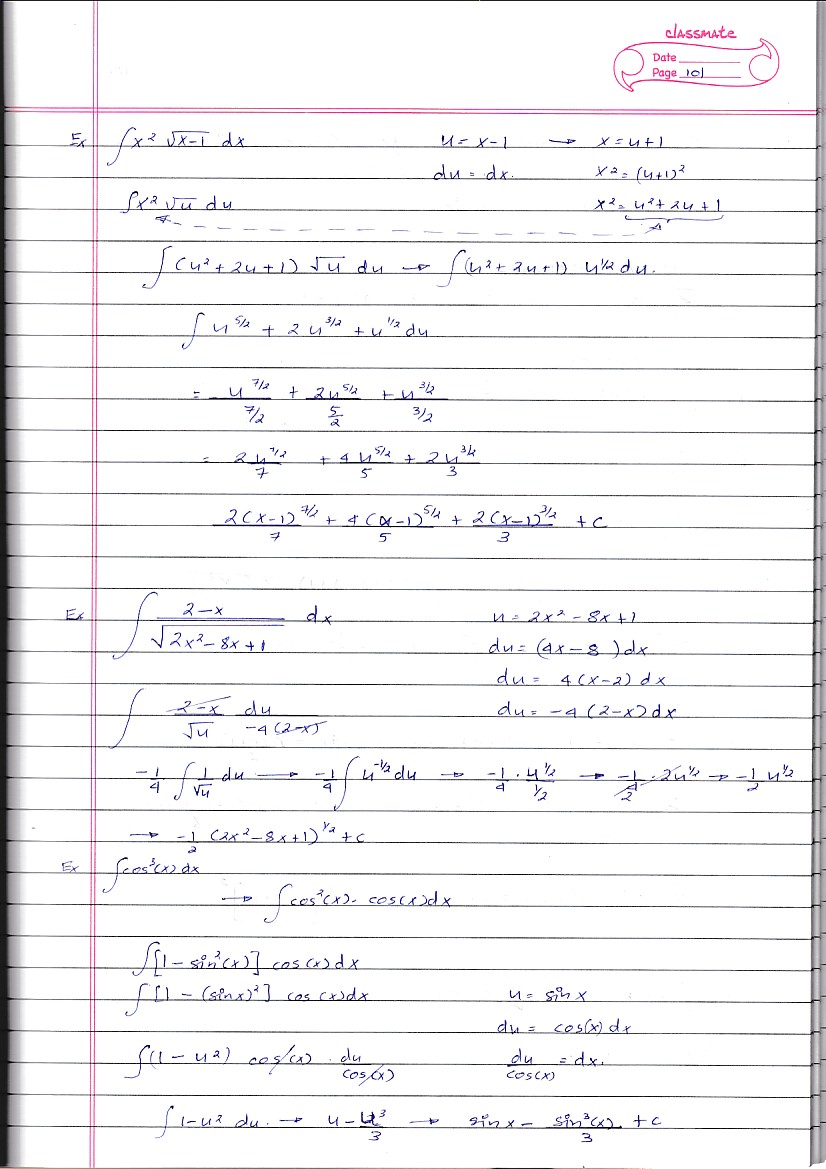 classmate
Date
Page 101
Ex ∫x² √x-1 dx u = x-1 → x = u+1
du = dx. x² = (u+1)²
∫x² √u du x² = u² + 2u + 1
∫(u² + 2u + 1) √u du → ∫(u² + 2u + 1) u^1/2 du.
∫ u^5/2 + 2u^3/2 + u^1/2 du
= u^7/2 / 7/2 + 2u^5/2 / 5/2 + u^3/2 / 3/2
= 2u^7/2 / 7 + 4u^5/2 / 5 + 2u^3/2 / 3
2(x-1)^7/2 / 7 + 4(x-1)^5/2 / 5 + 2(x-1)^3/2 / 3 + c
Ex ∫ 2-x / √2x²-8x+1 dx u = 2x² - 8x + 1
du = (4x - 8) dx
du = 4(x-2) dx
∫ 2-x / √u du / -4(2-x) du = -4(2-x) dx
-1/4 ∫ 1/√u du → -1/4 ∫ u^-1/2 du → -1/4 · u^1/2 / 1/2 → -1/4 · 2u^1/2 → -1/2 u^1/2
→ -1/2 (2x²-8x+1)^1/2 + c
Ex ∫cos³(x) dx
→ ∫cos²(x) · cos(x) dx
∫[1 - sin²(x)] cos(x) dx
∫[1 - (sinx)²] cos(x) dx u = sin x
du = cos(x) dx
∫(1 - u²) cos(x) · du / cos(x) du / cos(x) = dx.
∫ 1-u² du. → u - u³/3 → sin x - sin³(x) / 3 + c